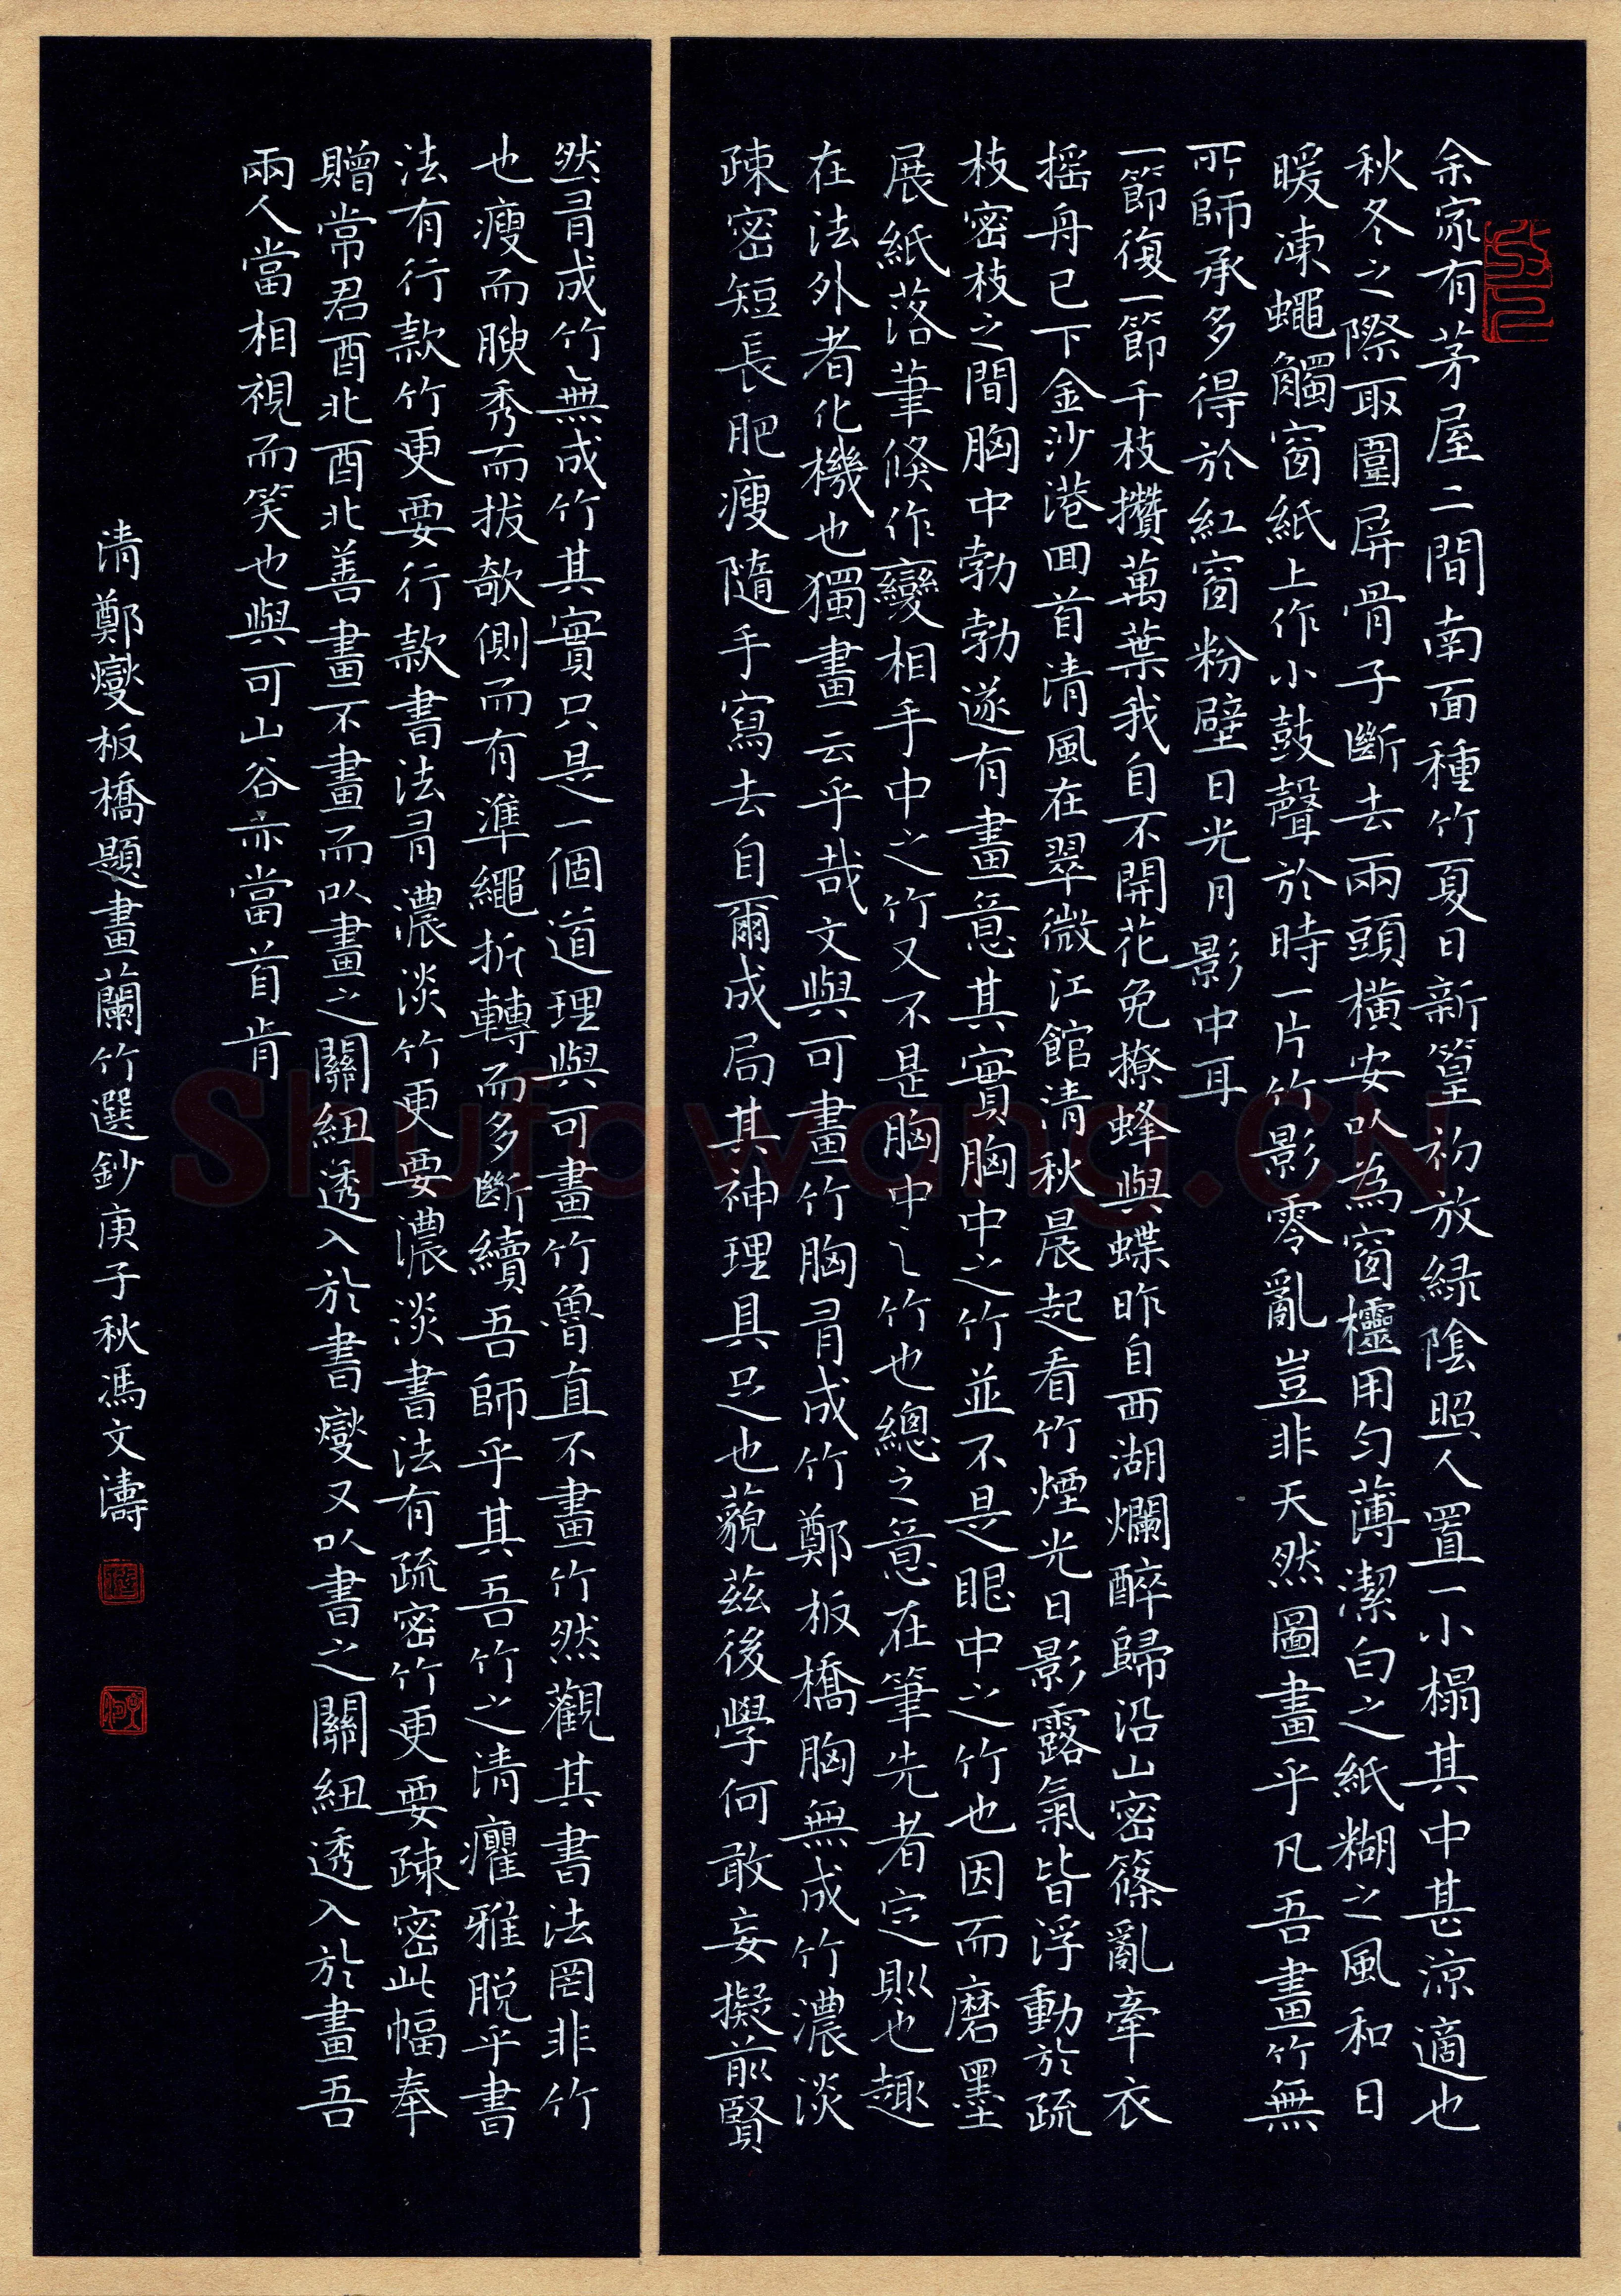 余家有茅屋二間南面種竹夏日新篁初放綠陰照人置一小榻其中甚涼適也
秋冬之際取圍屏骨子斷去兩頭橫安以為窗櫺用勻薄潔白之紙糊之風和日
暖凍蠅觸窗紙上作小鼓聲於時一片竹影零亂豈非天然圖畫乎凡吾畫竹無
所師承多得於紅窗粉壁日光月影中耳
一節復一節千枝攢萬葉我自不開花免撩蜂與蝶昨自西湖爛醉歸沿山密篠亂牽衣
搖舟已下金沙港回首清風在翠微江館清秋晨起看竹煙光日影露氣皆浮動於疏
枝密枝之間胸中勃勃遂有畫意其實胸中之竹並不是眼中之竹也因而磨墨
展紙落筆倏作變相手中之竹又不是胸中之竹也總之意在筆先者定則也趣
在法外者化機也獨畫云乎哉文與可畫竹胸有成竹鄭板橋胸無成竹濃淡
疎密短長肥瘦隨手寫去自爾成局其神理具足也藐茲後學何敢妄擬前賢
然有成竹無成竹其實只是一個道理與可畫竹魯直不畫竹然觀其書法罔非竹
也瘦而腴秀而拔欹側而有準繩折轉而多斷續吾師乎其吾竹之清癯雅脫乎書
法有行款竹更要行款書法有濃淡竹更要濃淡書法有疏密竹更要疎密此幅奉
贈常君酉北酉北善畫不畫而以畫之關紐透入於書燮又以書之關紐透入於畫吾
兩人當相視而笑也與可山谷亦當首肯
清鄭燮板橋題畫蘭竹選鈔庚子秋馮文濤
Shufawang.CN